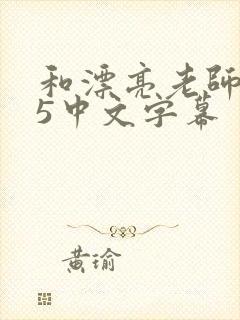 和漂亮老師
5中文字幕
黄瑜